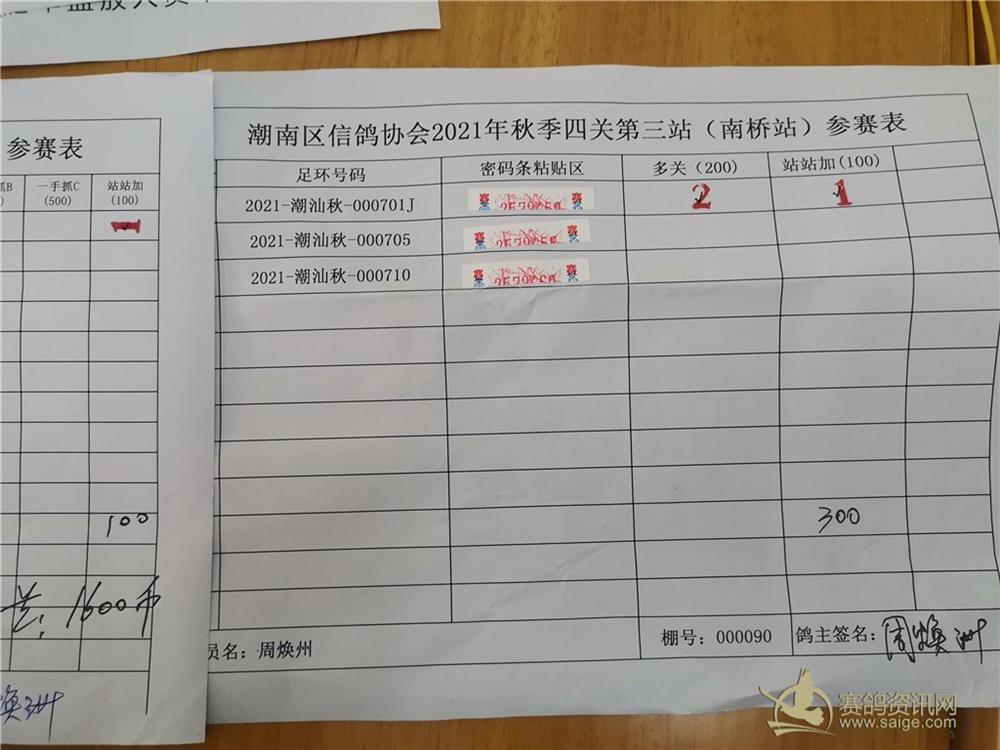 参赛表
抓B 一手抓C 站站加
(500) (100)
1
100
共：1600币
焕洲
潮南区信鸽协会2021年秋季四关第三站（南桥站）参赛表
足环号码 密码条粘贴区 多关（200） 站站加(100)
2021-潮汕秋-000701J 赛 赛 2 1
2021-潮汕秋-000705 赛 赛
2021-潮汕秋-000710 赛 赛
300
员名：周焕州 棚号：000090 鸽主签名：周焕洲
赛鸽资讯网
www.saige.com